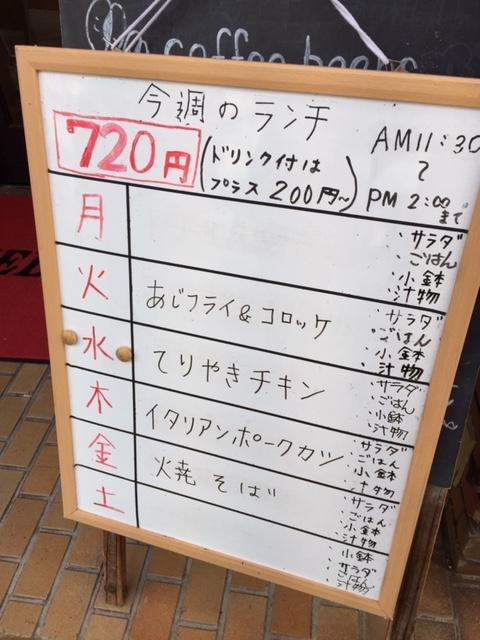 coffee beans
今週のランチ
720円
(ドリンク付は
プラス200円~)
AM11:30
~
PM 2:00まで
月
・サラダ
・ごはん
・小鉢
・汁物
火 あじフライ&コロッケ
・サラダ
・ごはん
・小鉢
・汁物
水 てりやきチキン
・サラダ
・ごはん
・小鉢
・汁物
木 イタリアンポークカツ
・サラダ
・ごはん
・小鉢
・汁物
金 焼そば
・サラダ
・ごはん
・小鉢
・汁物
土
・小鉢
・サラダ
・ごはん
・汁物